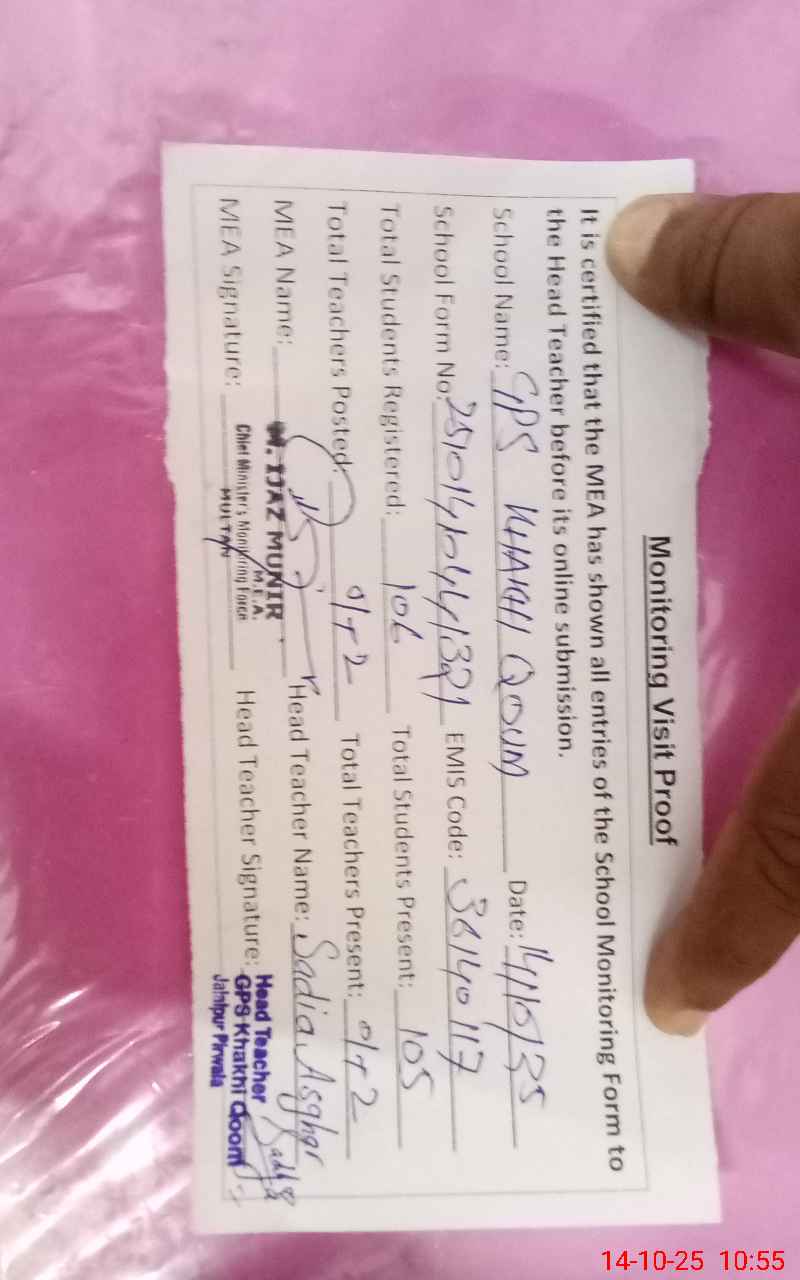 Monitoring Visit Proof
It is certified that the MEA has shown all entries of the School Monitoring Form to
the Head Teacher before its online submission.
School Name: GPS KHAKHI QOUM Date: 14/10/25
School Form No: EMIS Code: 36140117
Total Students Registered: 106 Total Students Present: 105
Total Teachers Posted: 0/+2 Total Teachers Present: 0/+2
MEA Name: M. IJAZ MUNIR Head Teacher Name: Sadia Asghar
M.E.A.
Chief Minister's Monitoring Force
MULTAN
MEA Signature: Head Teacher Signature:
Head Teacher
GPS Khakhi Qoom
Jalalpur Pirwala
14-10-25 10:55